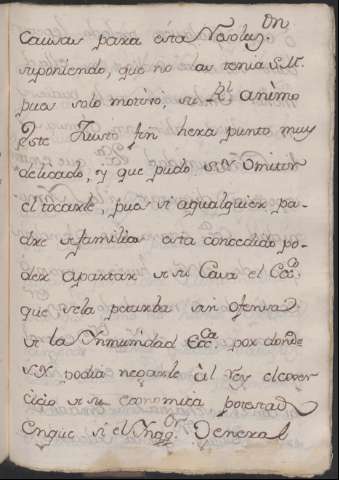 causas para esta Resoluz.on
suponiendo, que no las tenia S.M.
pues solo motivó, su Rl animo
Este Justo fin hera punto muy
delicado, y que pudo S.M. Omitir
el tocarle, pues si aqualquier pa-
dre de familias esta concedido po-
der apartar de su Casa el Ecc.co
que sela perturba sin ofensa
de la Ynmunidad Ecc.ca por donde
S.M. podia negarle àl Rey el exer
cicio de su economica potestad
Enque si el Ynq.or General